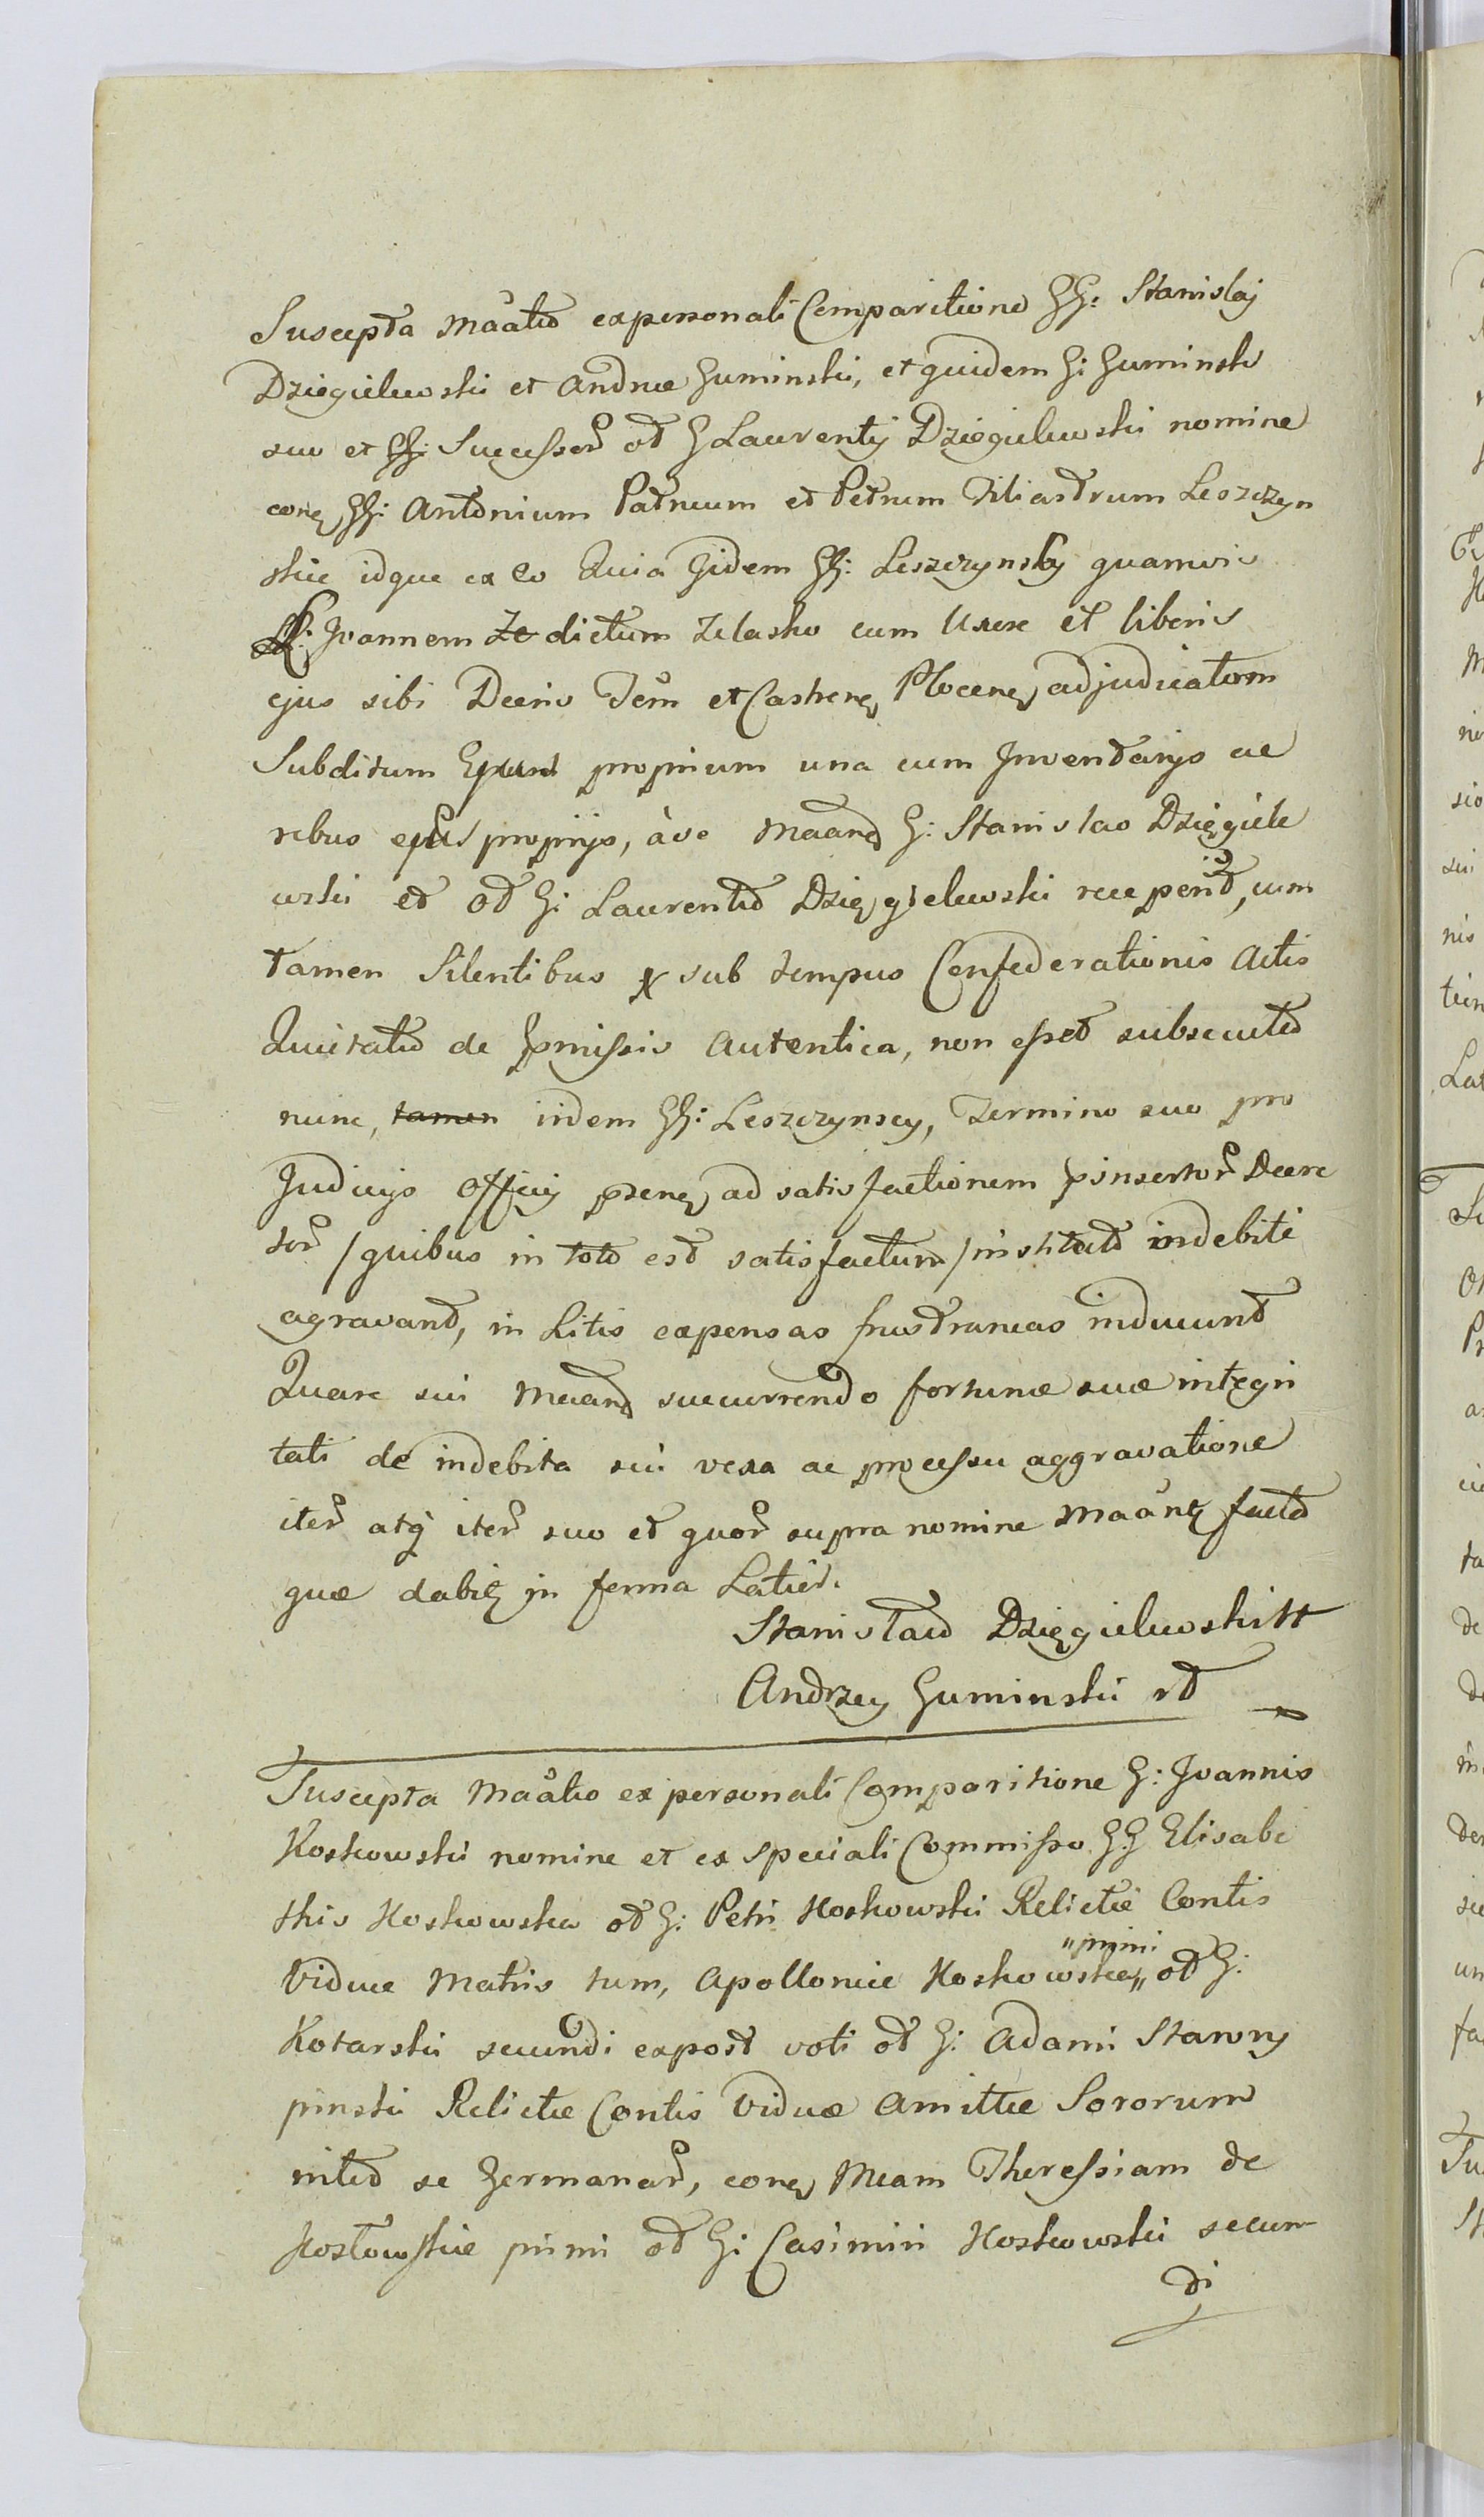 Suscepta Maãtio ex personali Comparitione GG: Stanislaj
Dziegielewski et Andreæ Guminski, et quidem G: Guminski
suo et GG: Successor olim G Laurentij Dziegielewski nomine
con GG: Antonium Patruum et Petrum Filiastrum Leszczyn
skie idque ex eo Quia Iidem GG: Leszczynscy quamvis
H: Joannem dictum Zelasko cum Uxore et liberis
ejus sibi Decris Terr et Castren Plocen adjudicatom
Subditum proprium una cum Inventarijs ac
rebus propriis, a se Maand G: Stanislao Dzięgiele
wski et ol G: Laurentio Dzięgielewski receperint, cum
tamen Silentibus sub tempus Confederationis Actis
Quietatio de pmissis autentica, non esset subsecuta
nunc, tamen iidem GG: Leszczynscy, Termino suo pro
Judicijs Officij psens ad satisfactionem pinsertor Decre
tor / quibus in toto est satisfactum / instituto indebite
agravant, in Litis expensas frustraneas inducunt
Quare sui Maand succurrendo fortunæ suæ integri
tati de indebita sui vexa ac processu aggravatione
iter atq iter suo et quor supra nomine Maant facta
quæ dabit in forma Latior.
Stanisław Dzięgielewski
Andrzey Guminski
Suscepta Maãtio ex personali Comparitione G: Joannis
Koskowski nomine et ex speciali Commisso GG Elisabe
this Koskowska ol G: Petri Koskowski Relictæ Contis
Viduæ Matris tum, Apolloniæ Koskowska „primi„ ol G:
Kotarski secundi expost voti ol G: Adami Stawry
pinski Relictæ Contis Viduæ Amittæ Sororum
inter se Germanar, con Meam Theressiam de
Kosłowskie primi ol G: Casimiri Koskowski secun
di